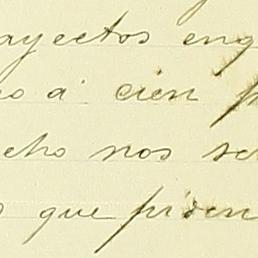 ayectos eng
o á cien p
cho nos se
s que piden